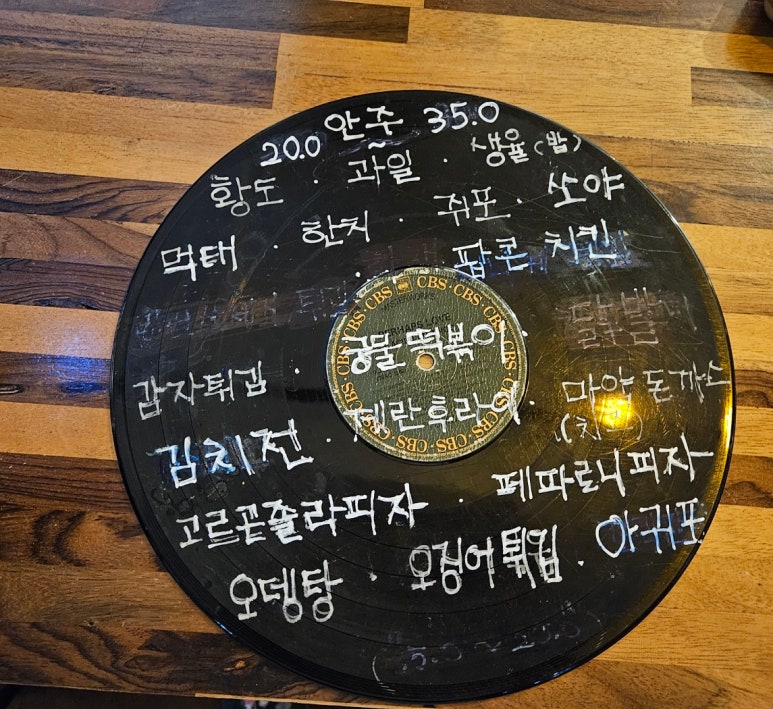 20.0 안주 35.0
~
황도 · 과일 · 생율 (밤)
먹태 · 한치 · 쥐포 · 쏘야
팝콘 치킨
CBS · CBS · CBS · CBS · CBS · CBS · CBS · CBS
PERHAPS LOVE
궁물떡볶이
감자튀김 · 계란후라이 · 마약돈까스
김치전
고르곤졸라피자 · 페파로니피자
오뎅탕 · 오징어튀김 · 아귀포